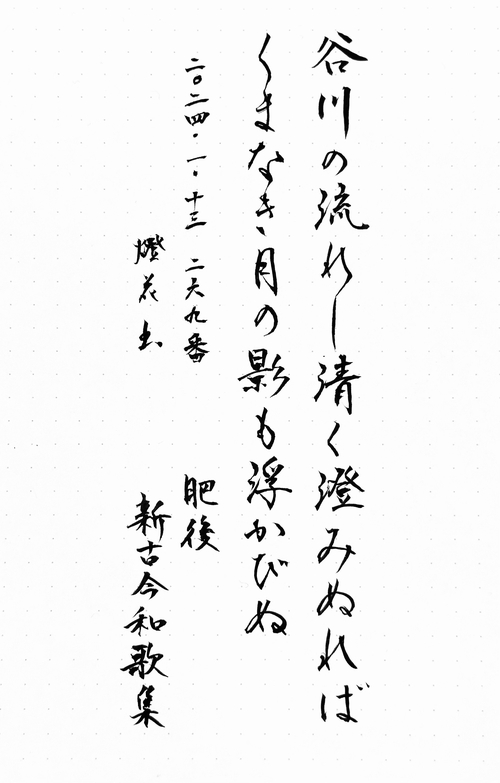 谷川の流れし清く澄みぬれば
くまなき月の影も浮かびぬ
二〇二四・一・十三 二六九番
肥後
燈花書
新古今和歌集